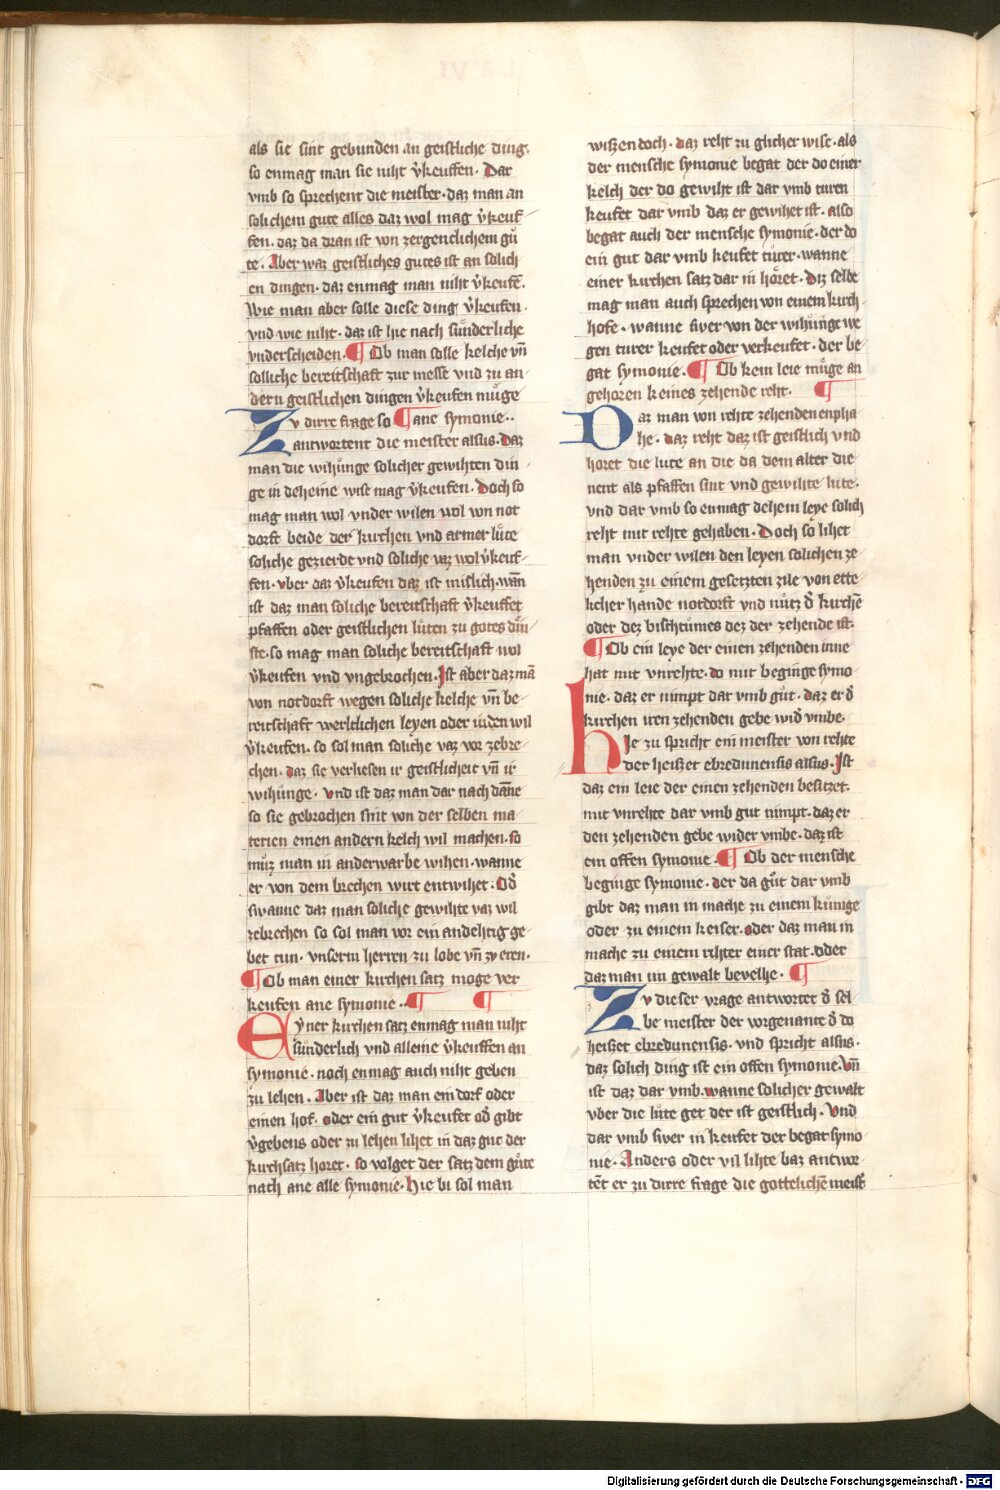 als sie sint gebunden an geistliche ding.
so enmag man sie niht v̓keuffen. Dar
vmb so sprechent die meister. daz man an
solichem gute alles daz wol mag v̓keuf
fen. daz da dran ist von zergenclichem gů
te. Aber waz geistliches gutes ist an solich
en dingen. daz enmag man niht v̓keufē.
Wie man aber solle diese ding v̓keufen.
vnd wie niht. daz ist hie nach sůnderliche
vnderscheiden. ¶ Ob man solle kelche vn̄
solliche bereitschaft zur messe vnd zu an
dern geistlichen dingen v̓keufen můge
Zv dirre frage so ¶ ane symonie..
antwortent die meister alsus. Daz
man die wihůnge solicher gewihten din
ge in deheine wise mag v̓keufen. Doch so
mag man wol vnder wilen wol von not
dorft beide der kirchen vnd armer lůte
soliche gezierde vnd soliche vaz wol v̓keuf
fen. vber daz v̓keufen daz ist mislich. wan̄
ist daz man soliche bereitschaft v̓keuffet
pfaffen oder geistlichen lůten zu gotes din
ste. so mag man soliche bereitschaft wol
v̓keufen vnd vngebrochen. Ist aber daz mā
von notdorft wegen soliche kelche vn̄ be
reitschaft werltlichen leyen oder iuden wil
v̓keufen. so sol man soliche vaz vor zebre
chen. daz sie verliesen ir geistlicheit vn̄ ir
wihůnge. vnd ist daz man dar nach dāne
so sie gebrochen sint von der selben ma
terien einen andern kelch wil machen. so
můz man in anderwarbe wihen. wanne
er von dem brechen wirt entwihet. Od̓
swanne daz man soliche gewihte vaz wil
zebrechen so sol man vor ein andehtig ge
bet tun. vnserm herren zu lobe vn̄ zv eren.
¶ Ob man einer kirchen satz moge ver
keufen ane symonie. ¶ ¶
Eẏner kirchen satz enmag man niht
sůnderlich vnd alleine v̓keuffen an
symonie. noch enmag auch niht geben
zu lehen. Aber ist daz man ein dorf oder
einen hof. oder ein gut v̓keufet od̓ gibt
v̓gebens oder zu lehen lihet in daz gut der
kirchsatz horet. so volget der satz dem gůte
nach ane alle symonie. Hie bi sol man
wißen doch. daz reht zu glicher wise. als
der mensche symonie begat der do einer
kelch der do gewiht ist dar vmb turen
keufet dar vmb daz er gewihet ist. also
begat auch der mensche symonie. der do
ein gut dar vmb keufet tůrer. wanne
einer kirchen satz dar in hőret. Diz selbe
mag man auch sprechen von einem kirch
hofe. wanne swer von der wihůnge we
gen turer keufet oder verkeufet. der be
gat symonie. ¶ Ob kein leie můge an
gehoren keines zehende reht. ¶
Daz man von rehte zehenden enpha
he. daz reht daz ist geistlich vnd
horet die lute an die da dem alter die
nent als pfaffen sint vnd gewihte lute.
vnd dar vmb so enmag dehein leye solich
reht mit rehte gehaben. Doch so lihet
man vnder wilen den leyen solichen ze
henden zu einem gesetzten zile von ette
licher hande notdorft vnd nůtz d̓ kirchē
oder dez bischtůmes dez der zehende ist.
¶ Ob ein leye der einen zehenden inne
hat mit vnrehte. do mit beginge symo
nie. daz er nimpt dar vmb gůt. daz er d̓
kirchen iren zehenden gebe wid̓ vmbe.
Hie zu spricht ein meister von rehte
der heißet ebredunensis alsus. Ist
daz ein leie der einen zehenden besitzet.
mit vnrehte dar vmb gut nimpt. daz er
den zehenden gebe wider vmbe. daz ist
ein offen symonie. ¶ Ob der mensche
beginge symonie. der da gůt dar vmb
gibt daz man in mache zu einem kůnige
oder zu einem keiser. oder daz man in
mache zu einem rihter einer stat. oder
daz man im gewalt bevelhe. ¶
Zv dieser vrage antwortet d̓ sel
be meister der vorgenante d̓ do
heißet ebredunensis. vnd spricht alsus.
daz solich ding ist ein offen symonie. Vn̄
ist daz dar vmb. wanne solicher gewalt
vber die lůte get der ist geistlich. Vnd
dar vmb swer in keufet der begat symo
nie. Anders oder vil lihte baz antwor
tēt er zu dirre frage die gottelichē meist̓